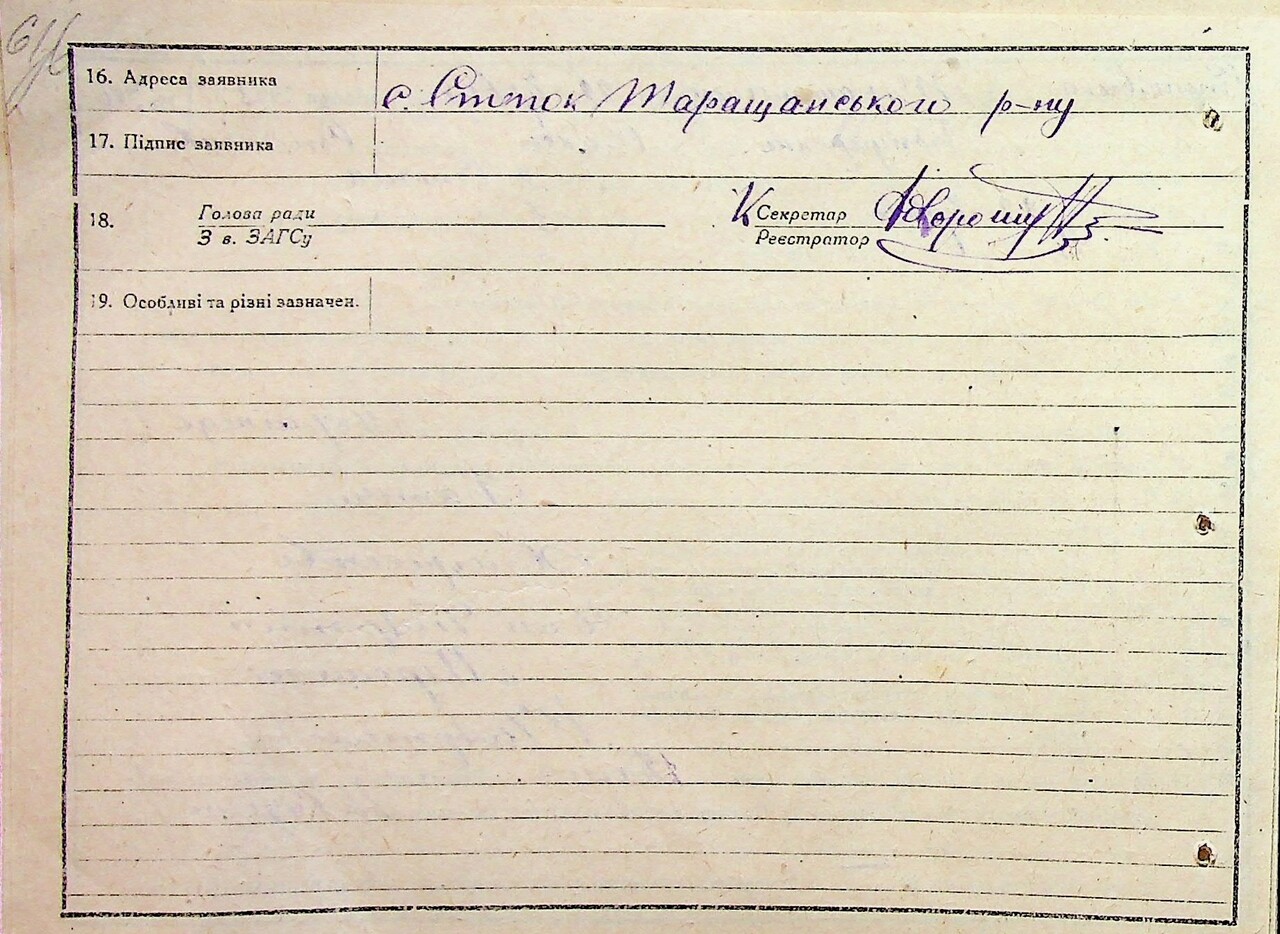 16. Адреса заявника
с. Степок Таращанського р-ну
17. Підпис заявника
18. Голова ради
З в. ЗАГСу
Секретар
Реєстратор
19. Особливі та різні зазначен.